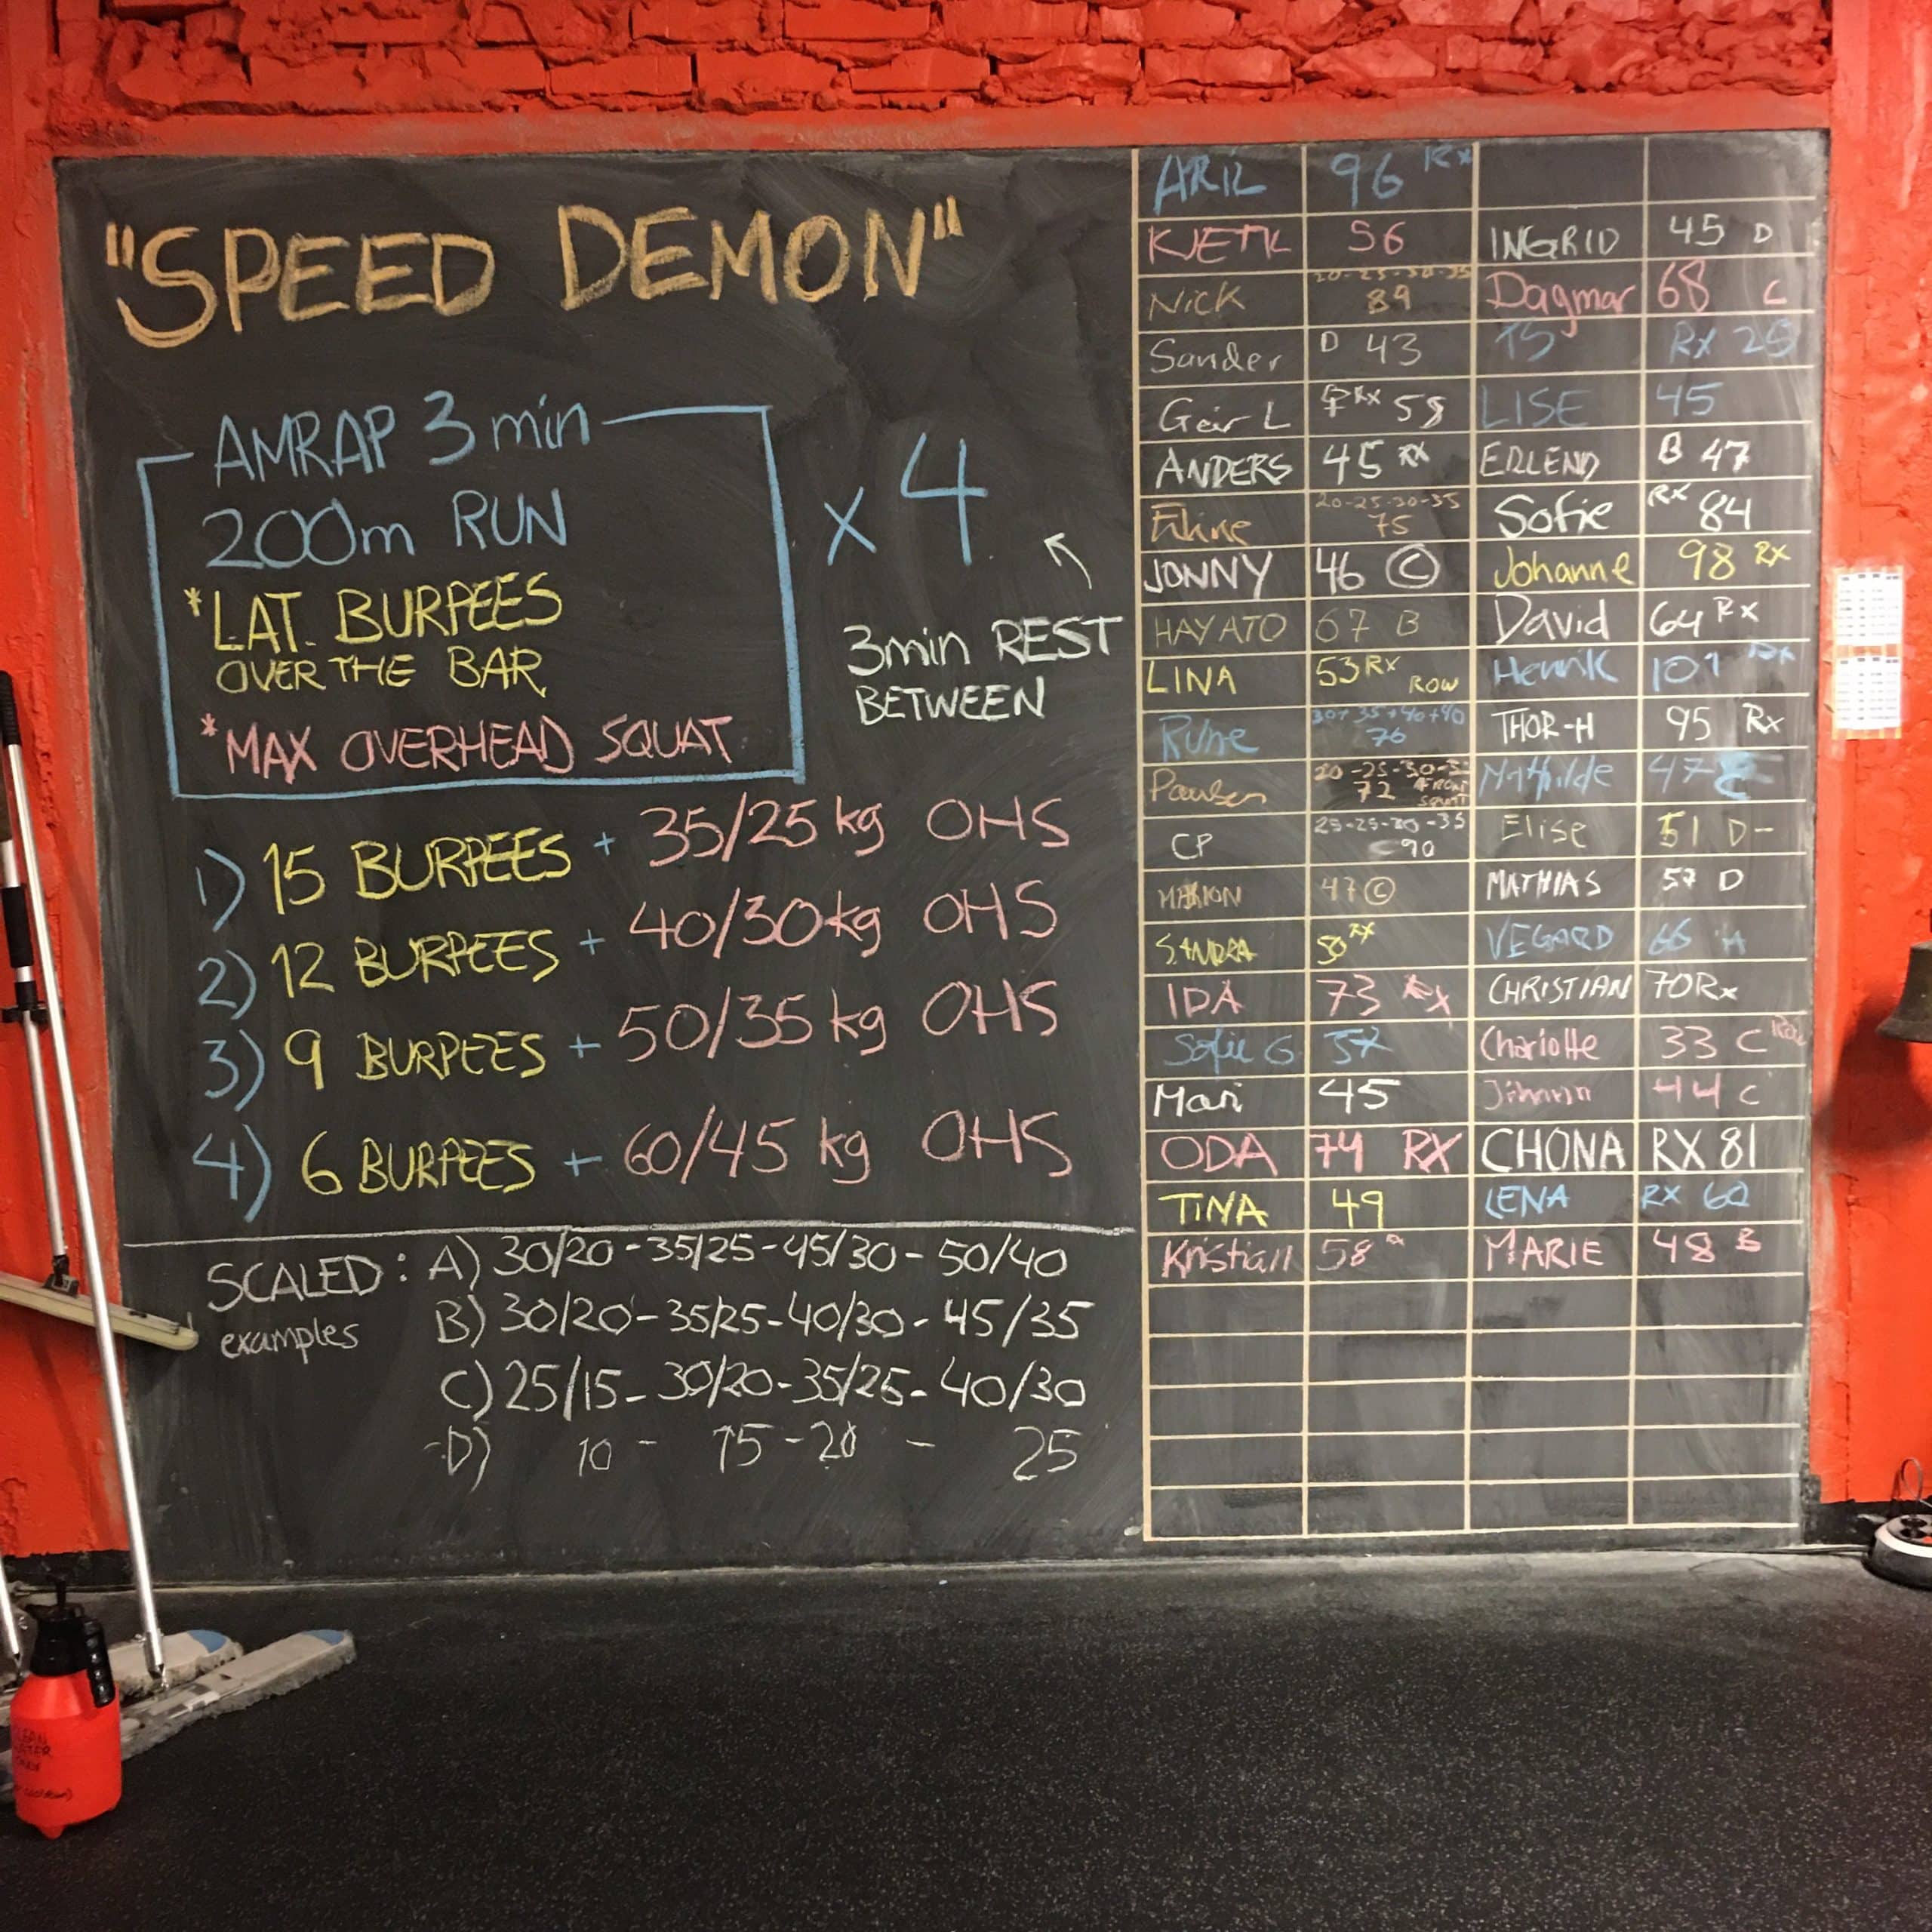 "SPEED DEMON"
AMRAP 3 min
200m RUN
*LAT. BURPEES
OVER THE BAR
*MAX OVERHEAD SQUAT
x 4
3min REST
BETWEEN
1) 15 BURPEES + 35/25 kg OHS
2) 12 BURPEES + 40/30kg OHS
3) 9 BURPEES + 50/35 kg OHS
4) 6 BURPEES + 60/45 kg OHS
SCALED: A) 30/20 - 35/25 - 45/30 - 50/40
examples B) 30/20 - 35/25 - 40/30 - 45/35
C) 25/15 - 30/20 - 35/25 - 40/30
D) 10 - 15 - 20 - 25
96 Rx
KJETIL 56 INGRID 45 D
Nick 20-25-30-35 89 Dagmar 68 C
Sander D 43 TS Rx
Geir L RX LISE 45
ANDERS 45 RX ERLEND B 47
20-25-30-35 75 Sofie RX 84
JONNY 46 © Johanne 98 RX
HAYATO 67 B David 64 Rx
LINA 53 Rx ROW Henrik 101 Rx
Rune 30+35+40+40 76 THOR-H 95 Rx
Paulsen 72 FRONT SQUAT Mathilde 47 C
CP 25-25-30-35 90 Elise 51 D-
47 © MATHIAS 57 D
SANDRA 50 RX VEGARD 66 A
IDA 73 Rx CHRISTIAN 70 Rx
Sofie G Charlotte 33 C Row
Mari 45 44 C
ODA 74 RX CHONA RX 81
TINA 49 LENA RX
Kristian 58 MARIE 48 B
CLEAN
WATER